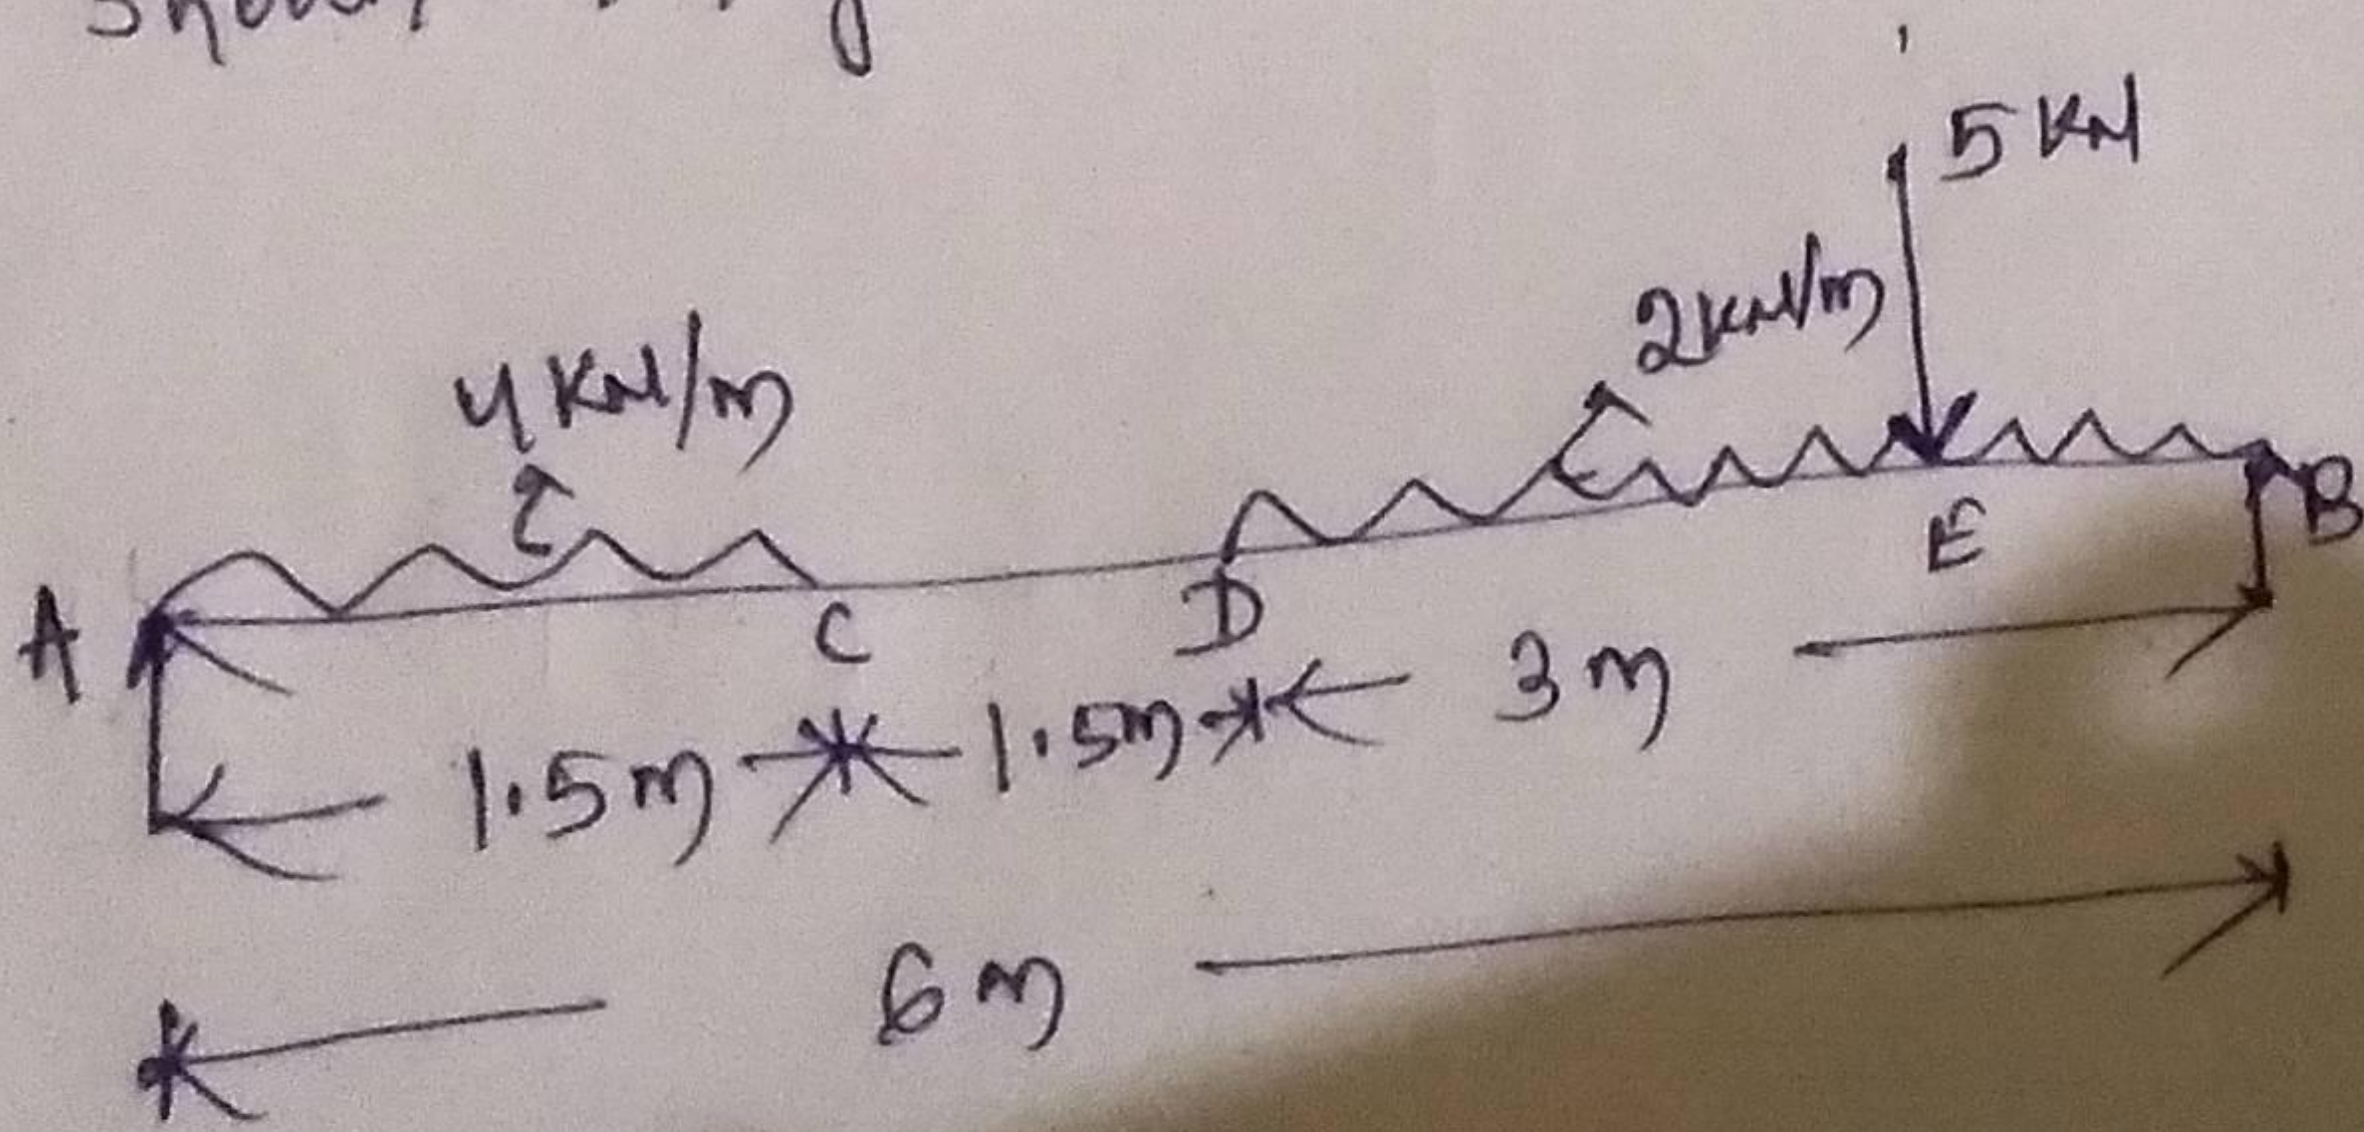 5 KN
2 KN/m
4 KN/m
A C D E B
1.5m 1.5m 3m
6m